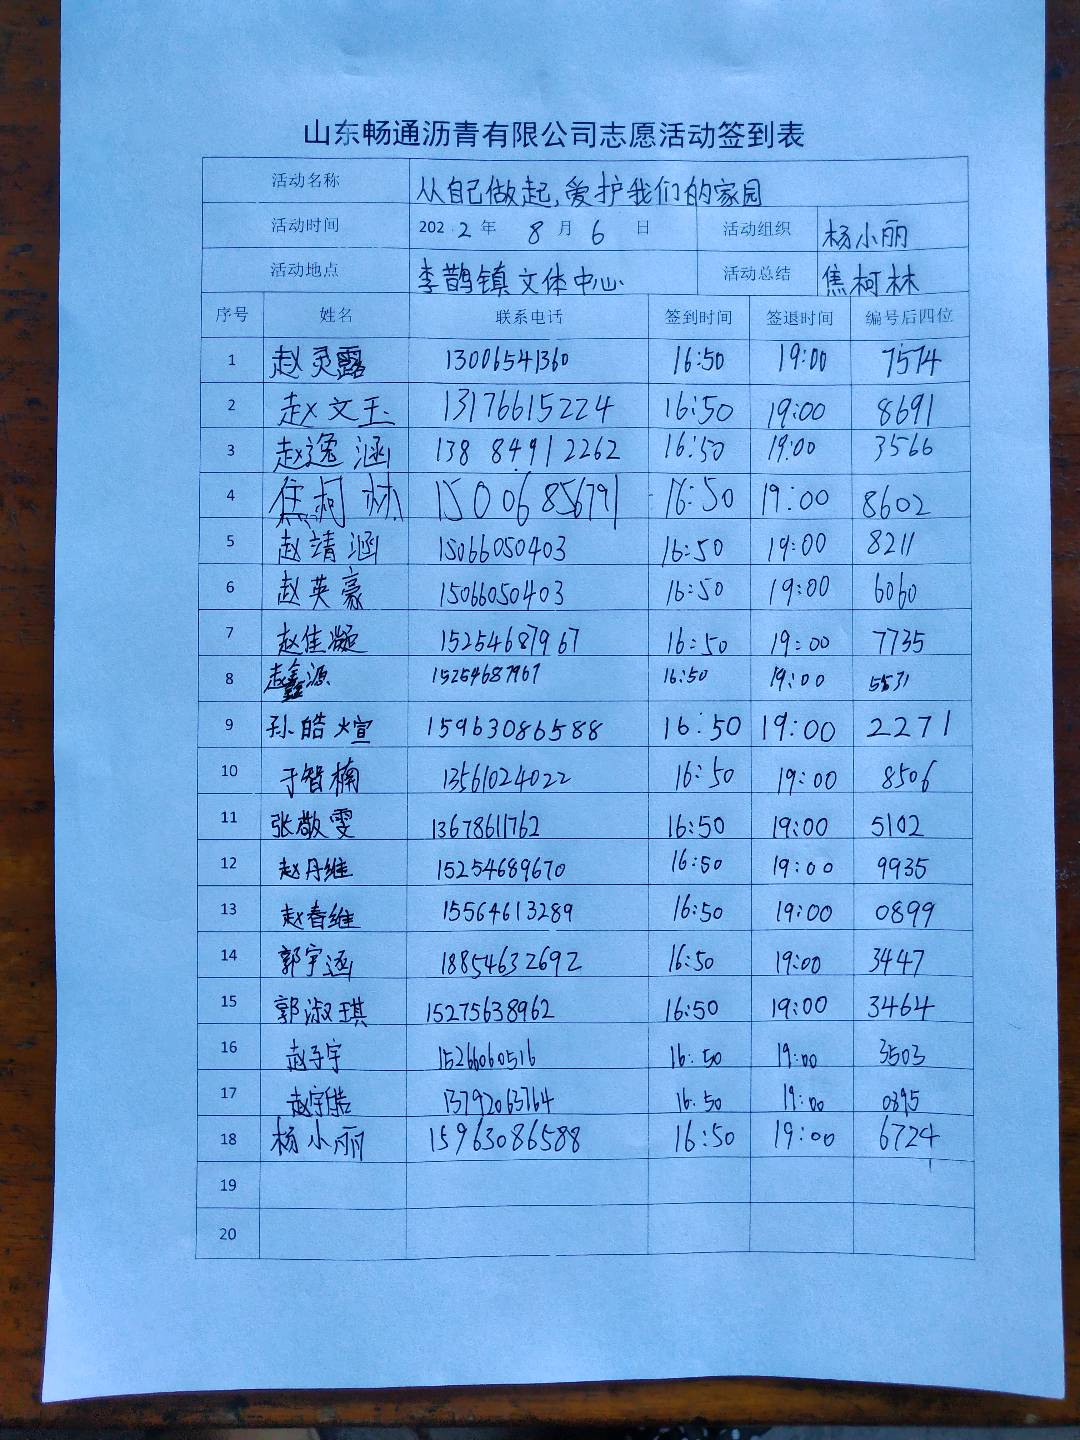 山东畅通沥青有限公司志愿活动签到表
活动名称 从自己做起,爱护我们的家园
活动时间 2022年 8月6日 活动组织 杨小丽
活动地点 李鹊镇文体中心 活动总结 焦柯林
序号 姓名 联系电话 签到时间 签退时间 编号后四位
1 赵灵露 13006541360 16:50 19:00 7574
2 赵文玉 13176615224 16:50 19:00 8691
3 赵逸涵 13884912262 16:50 19:00 3566
4 焦柯林 15006856791 16:50 19:00 8602
5 赵靖涵 15066050403 16:50 19:00 8211
6 赵英豪 15066050403 16:50 19:00 6060
7 赵佳凝 15254687967 16:50 19:00 7735
8 赵鑫源 15254687967 16:50 19:00 5531
9 孙皓煊 15963086588 16:50 19:00 2271
10 于智楠 13561024022 16:50 19:00 8506
11 张敬雯 13678611762 16:50 19:00 5102
12 赵丹维 15254689670 16:50 19:00 9935
13 赵春维 15564613289 16:50 19:00 0899
14 郭宇涵 18854632692 16:50 19:00 3447
15 郭淑琪 15275638962 16:50 19:00 3464
16 赵子宇 15266060516 16:50 19:00 3503
17 赵宇皓 13792063764 16:50 19:00 0895
18 杨小丽 15963086588 16:50 19:00 6724
19
20